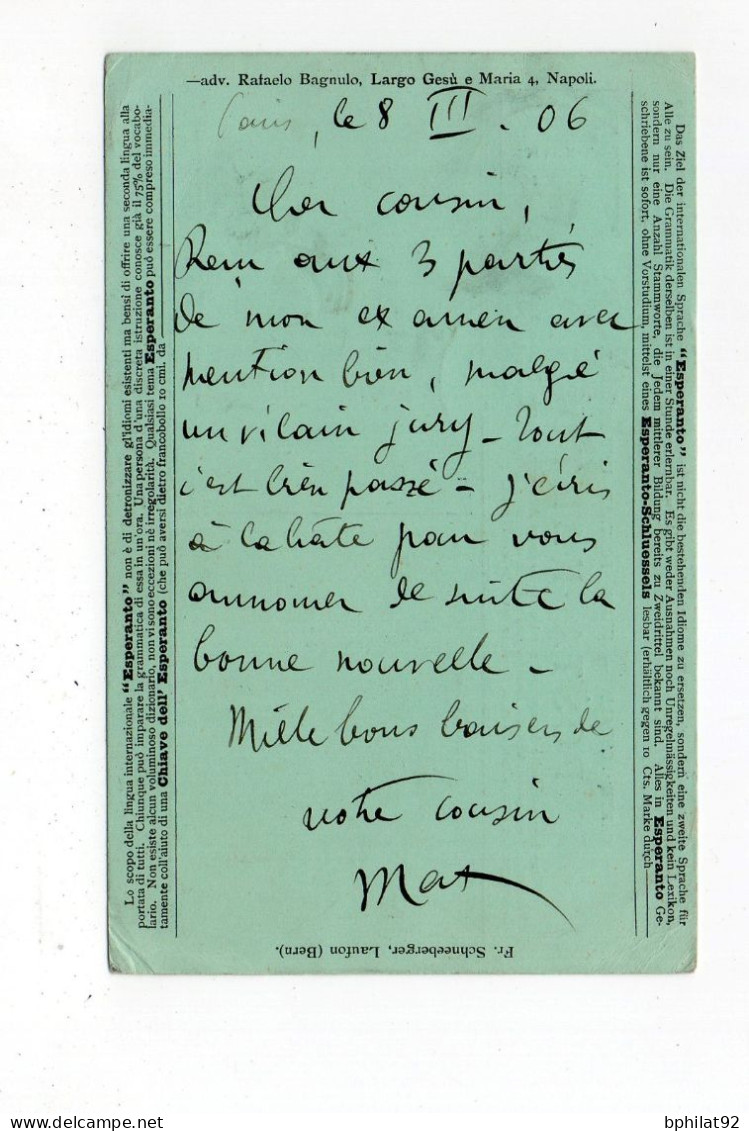 —adv. Rafaelo Bagnulo, Largo Gesù e Maria 4, Napoli.
Paris, le 8 III. 06
Cher cousin,
Reçu aux 3 parties
de mon examen avec
mention bien, malgré
un vilain jury - Tout
s'est bien passé - j'écris
à la hâte pour vous
annoncer de suite la
bonne nouvelle -
Mille bons baisers de
votre cousin
Max
Lo scopo della lingua internazionale "Esperanto" non è di detronizzare gl'idiomi esistenti ma bensi di offrire una seconda lingua alla
portata di tutti. Chiunque può imparare la grammatica di essa in un'ora. Una persona d'una discreta istruzione conosce già il 75% del vocabo-
lario. Non esiste alcun voluminoso dizionario, non vi sono eccezioni nè irregolarità. Qualsiasi tema Esperanto può essere compreso immedia-
tamente coll'aiuto di una Chiave dell' Esperanto (che può aversi dietro francobollo 10 cmi. da
Das Ziel der internationalen Sprache "Esperanto" ist nicht die bestehenden Idiome zu ersetzen, sondern eine zweite Sprache für
Alle zu sein. Die Grammatik derselben ist in einer Stunde erlernbar. Es gibt weder Ausnahmen noch Unregelmässigkeiten und kein Lexikon,
sondern nur eine Anzahl Stammworte, die Jedem mittlerer Bildung bereits zu Zweidrittel bekannt sind. Alles in Esperanto Ge-
schriebene ist sofort, ohne Vorstudium, mittelst eines Esperanto-Schluessels lesbar (erhältlich gegen 10 Cts. Marke durch
Fr. Schneeberger, Laufon (Bern).
bphilat92